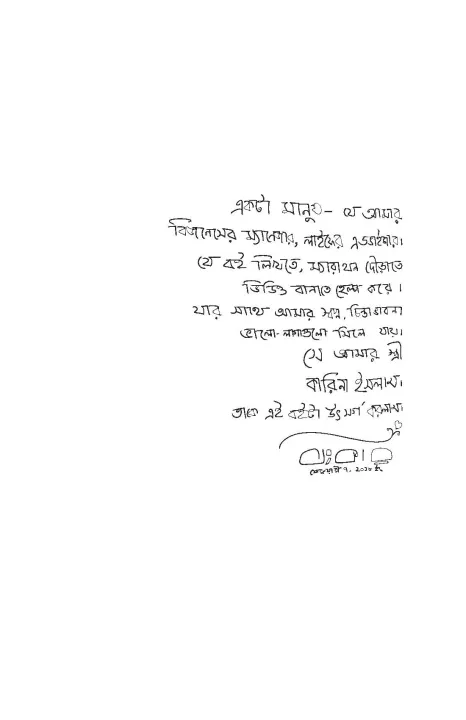 একটা মানুষ - যে আমার
বিজনেসের ম্যানেজার, লাইফের এডভাইজার।
যে বই লিখতে, ম্যারাথন দৌড়াতে
ভিডিও বানাতে হেল্প করে।
যার সাথে আমার স্বপ্ন, চিন্তাভাবনা
ভালো-লাগাগুলো মিলে যায়।
সে আমার স্ত্রী
কারিনা ইসলাম।
তাকে এই বইটা উৎসর্গ করলাম।